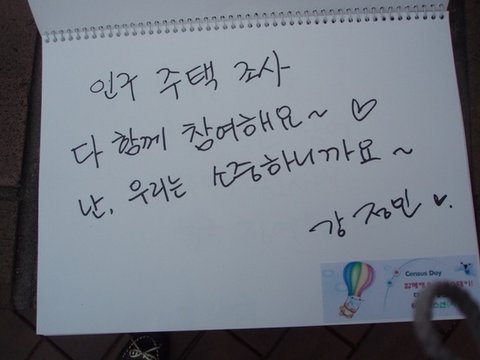 인구 주택 조사
다 함께 참여해요~ ♡
난, 우리는 소중하니까요~
강정민 ♥.
Census Day